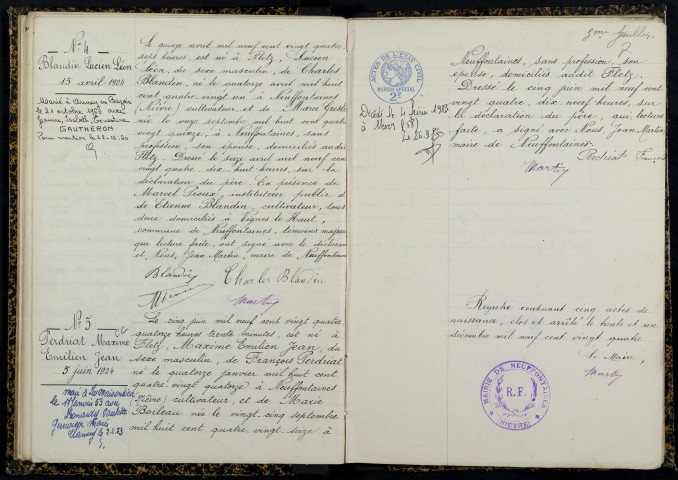 N° 4
Blandin Lucien Léon
15 avril 1924
GAUTHERON
Le quinze avril mil neuf cent vingt quatre,
sept heures, est né à Fletz, Lucien
Léon, du sexe masculin, de Charles
Blandin, né le quatorze avril mil huit
cent quatre vingt un à Neuffontaines
(Nièvre) cultivateur, et de Marie
née le onze septembre mil huit cent quatre
vingt quinze, à Neuffontaines, sans
profession, son épouse, domiciliés audit
Fletz. Dressé le seize avril mil neuf cent
vingt quatre, dix huit heures, sur la
déclaration du père. En présence de
Marcel Sioux, instituteur public et
de Etienne Blandin, cultivateur, tous
deux domiciliés à Vignes le Haut,
commune de Neuffontaines, témoins majeurs
que lecture faite, ont signé avec le déclarant
et Nous, Jean Martin, maire de Neuffontaines
Blandin
Charles Blandin
Martin
N° 5
Perdriat Maxime
Emilien Jean
5 juin 1924
le 17 janvier 53 avec
Le cinq juin mil neuf cent vingt quatre
quatorze heures trente minutes, est né à
Fletz, Maxime Emilien Jean, du
sexe masculin, de François Perdriat
né le quatorze janvier mil huit cent
quatre vingt quatorze à Neuffontaines
(Nièvre) cultivateur, et de Marie
Boileau née le vingt cinq septembre
mil huit cent quatre vingt seize à
3me feuillet
7
ACTES DE L'ETAT CIVIL
PAPIER SPECIAL
2F
Décédé le 4 février 1973
à Nevers (58)
Neuffontaines, sans profession, son
épouse, domiciliés audit Fletz.
Dressé le cinq juin mil neuf cent
vingt quatre, dix neuf heures, sur
la déclaration du père, qui lecture
faite, a signé avec Nous, Jean Martin
maire de Neuffontaines.
Perdriat François
Martin
Registre contenant cinq actes de
naissance, clos et arrêté le trente et un
décembre mil neuf cent vingt quatre.
Le Maire,
Martin
MAIRIE DE NEUFFONTAINES
R.F.
(NIEVRE)